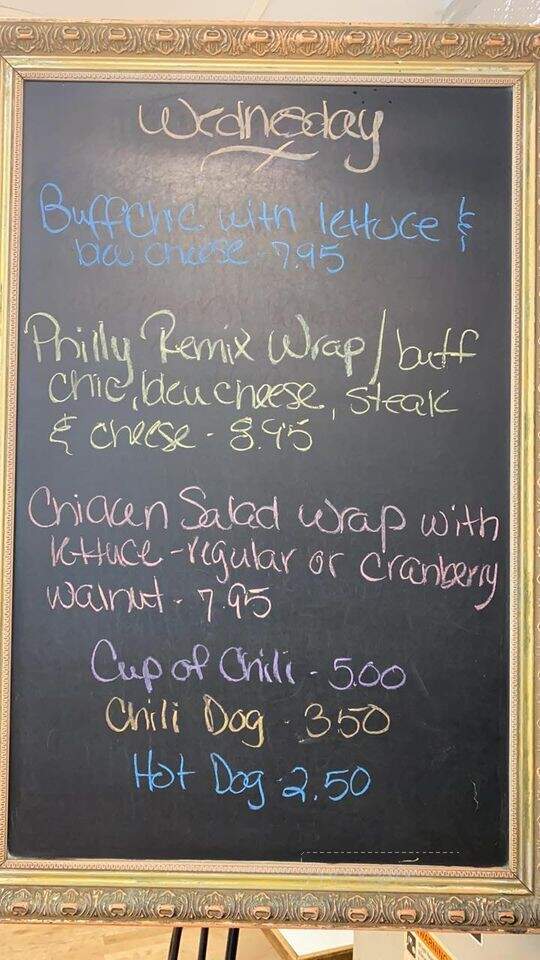 Wednesday
Buffchic with lettuce &
bleu cheese - 7.95
Philly Remix Wrap / buff
chic, bleu cheese, steak
& cheese - 8.95
Chicken Salad wrap with
lettuce - regular or cranberry
walnut - 7.95
Cup of Chili - 5.00
Chili Dog - 3.50
Hot Dog - 2.50
WARNING